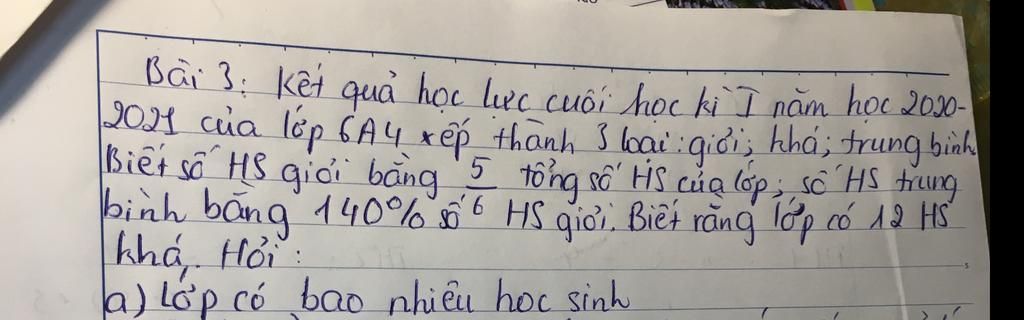 Bài 3: Kết quả học lực cuối học kì I năm học 2020-
2021 của lớp 6A4 xếp thành 3 loại: giỏi; khá; trung bình.
Biết số HS giỏi bằng 5/6 tổng số HS của lớp; số HS trung
bình bằng 140% số HS giỏi. Biết rằng lớp có 12 HS
khá. Hỏi:
a) Lớp có bao nhiêu học sinh